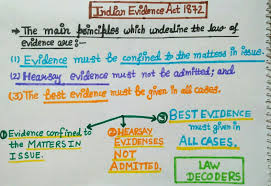 Indian Evidence Act 1872
→ The main principles which underline the law of
evidence are:-
(1) Evidence must be confined to the matters in issue.
(2) Hearsay evidence must not be admitted; and
(3) The best evidence must be given in all cases.
① Evidence confined to
the MATTERS IN
ISSUE.
② HEARSAY
EVIDENSES
NOT
ADMITTED.
③ BEST EVIDENCE
must given in
ALL CASES.
LAW
DECODERS